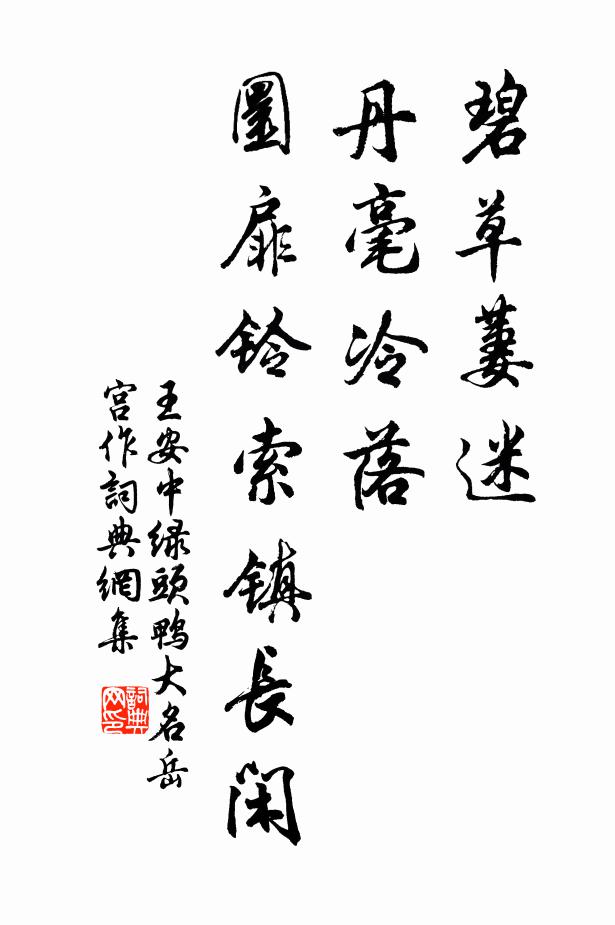 碧草萋迷
丹毫冷落
圜扉鈴索鎮長閑
王安中綠頭鴨大名岳
宫作詞典網集
詞典
网印